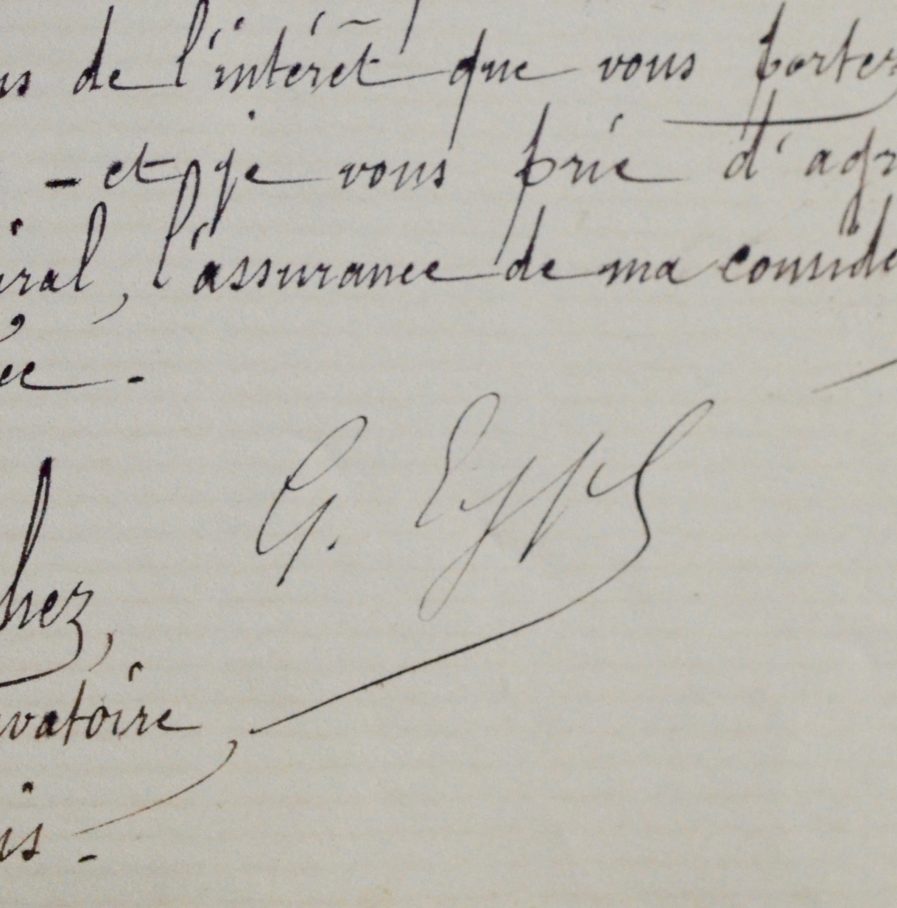 de l'intérêt que vous portez
- et je vous prie d'agr
iral, l'assurance de ma considé
ée.
G. Eyssé
hez,
vatoire
is -